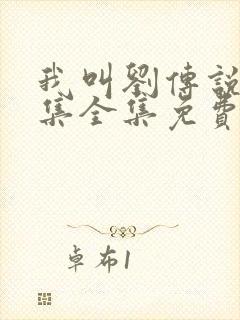 我叫劉傳說
集全集免費
卓布1